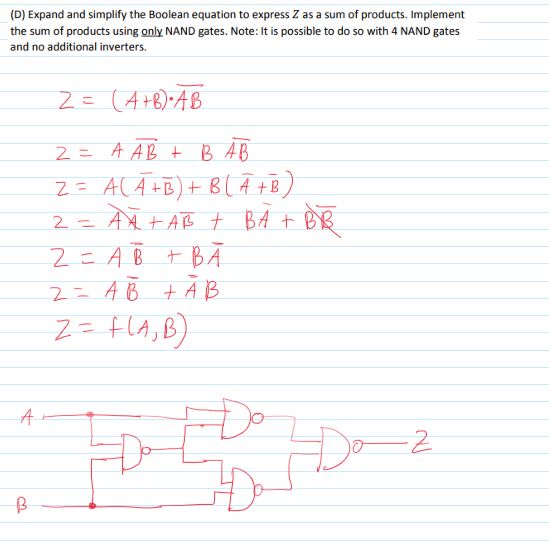 (D) Expand and simplify the Boolean equation to express Z as a sum of products. Implement
the sum of products using only NAND gates. Note: It is possible to do so with 4 NAND gates
and no additional inverters.
Z = (A+B)·A̅B̅
Z = A A̅B̅ + B A̅B̅
Z = A(A̅+B̅) + B(A̅+B̅)
Z = AA̅ + AB̅ + BA̅ + BB̅
Z = A B̅ + BA̅
Z = A B̅ + A̅ B
Z = f(A,B)
A
Z
B